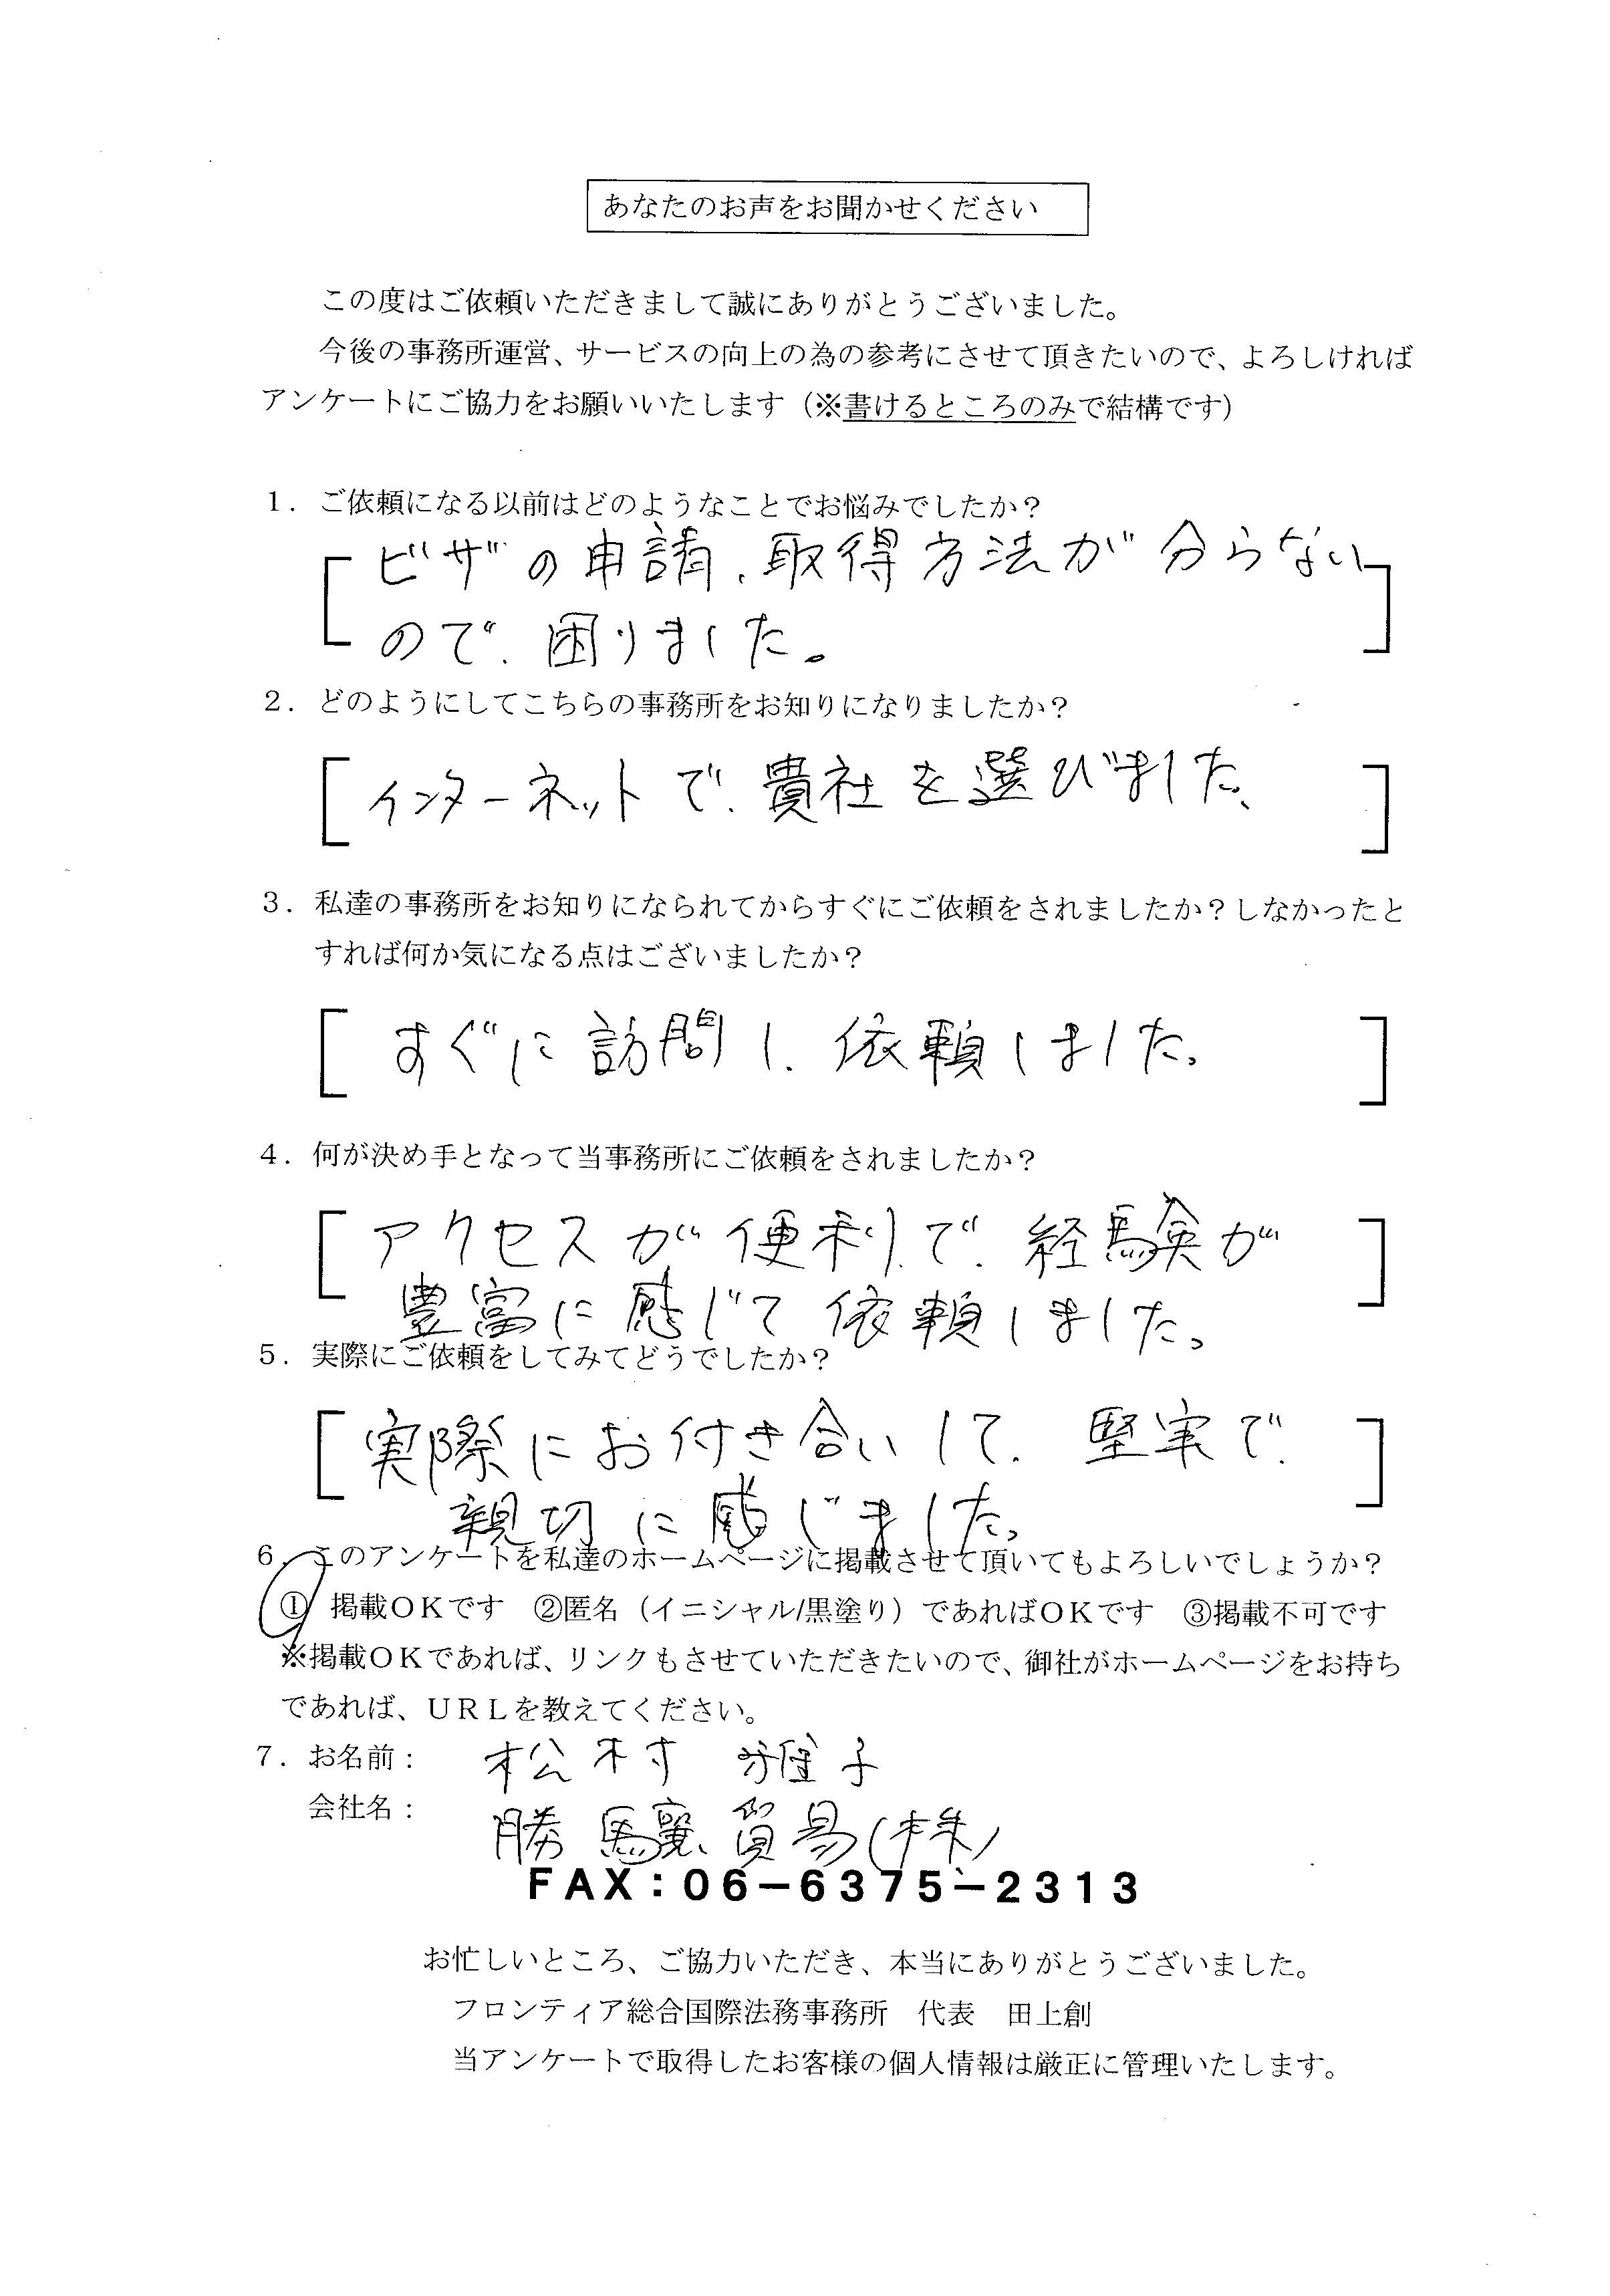 あなたのお声をお聞かせください
この度はご依頼いただきまして誠にありがとうございました。
今後の事務所運営、サービスの向上の為の参考にさせて頂きたいので、よろしければ
アンケートにご協力をお願いいたします（※書けるところのみで結構です）
１．ご依頼になる以前はどのようなことでお悩みでしたか？
ビザの申請、取得方法が分らない
ので、困りました。
２．どのようにしてこちらの事務所をお知りになりましたか？
インターネットで、貴社を選びました。
３．私達の事務所をお知りになられてからすぐにご依頼をされましたか？しなかったと
すれば何か気になる点はございましたか？
すぐに訪問し、依頼しました。
４．何が決め手となって当事務所にご依頼をされましたか？
アクセスが便利で、経験が
豊富に感じて依頼しました。
５．実際にご依頼をしてみてどうでしたか？
実際にお付き合いして、堅実で、
親切に感じました。
６．このアンケートを私達のホームページに掲載させて頂いてもよろしいでしょうか？
① 掲載ＯＫです　②匿名（イニシャル/黒塗り）であればＯＫです　③掲載不可です
※掲載ＯＫであれば、リンクもさせていただきたいので、御社がホームページをお持ち
であれば、ＵＲＬを教えてください。
７．お名前： 松村 雅子
会社名： 勝驤貿易(株)
ＦＡＸ：０６－６３７５－２３１３
お忙しいところ、ご協力いただき、本当にありがとうございました。
フロンティア総合国際法務事務所　代表　田上創
当アンケートで取得したお客様の個人情報は厳正に管理いたします。